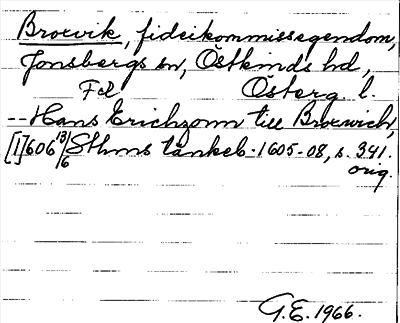 Broxvik, fideikommissegendom,
Jonsbergs sn, Östkinds hd,
Fcl Österg. l.
-- Hans Erichzonn till Broxwich,
[1]606 13/6 Sthms tänkeb. 1605-08, s. 341.
orig.
G.E. 1966.